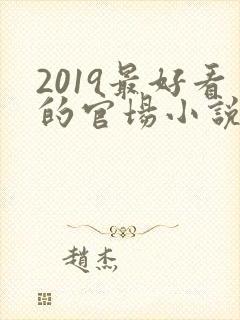 2019最好看
的官場小說
趙杰